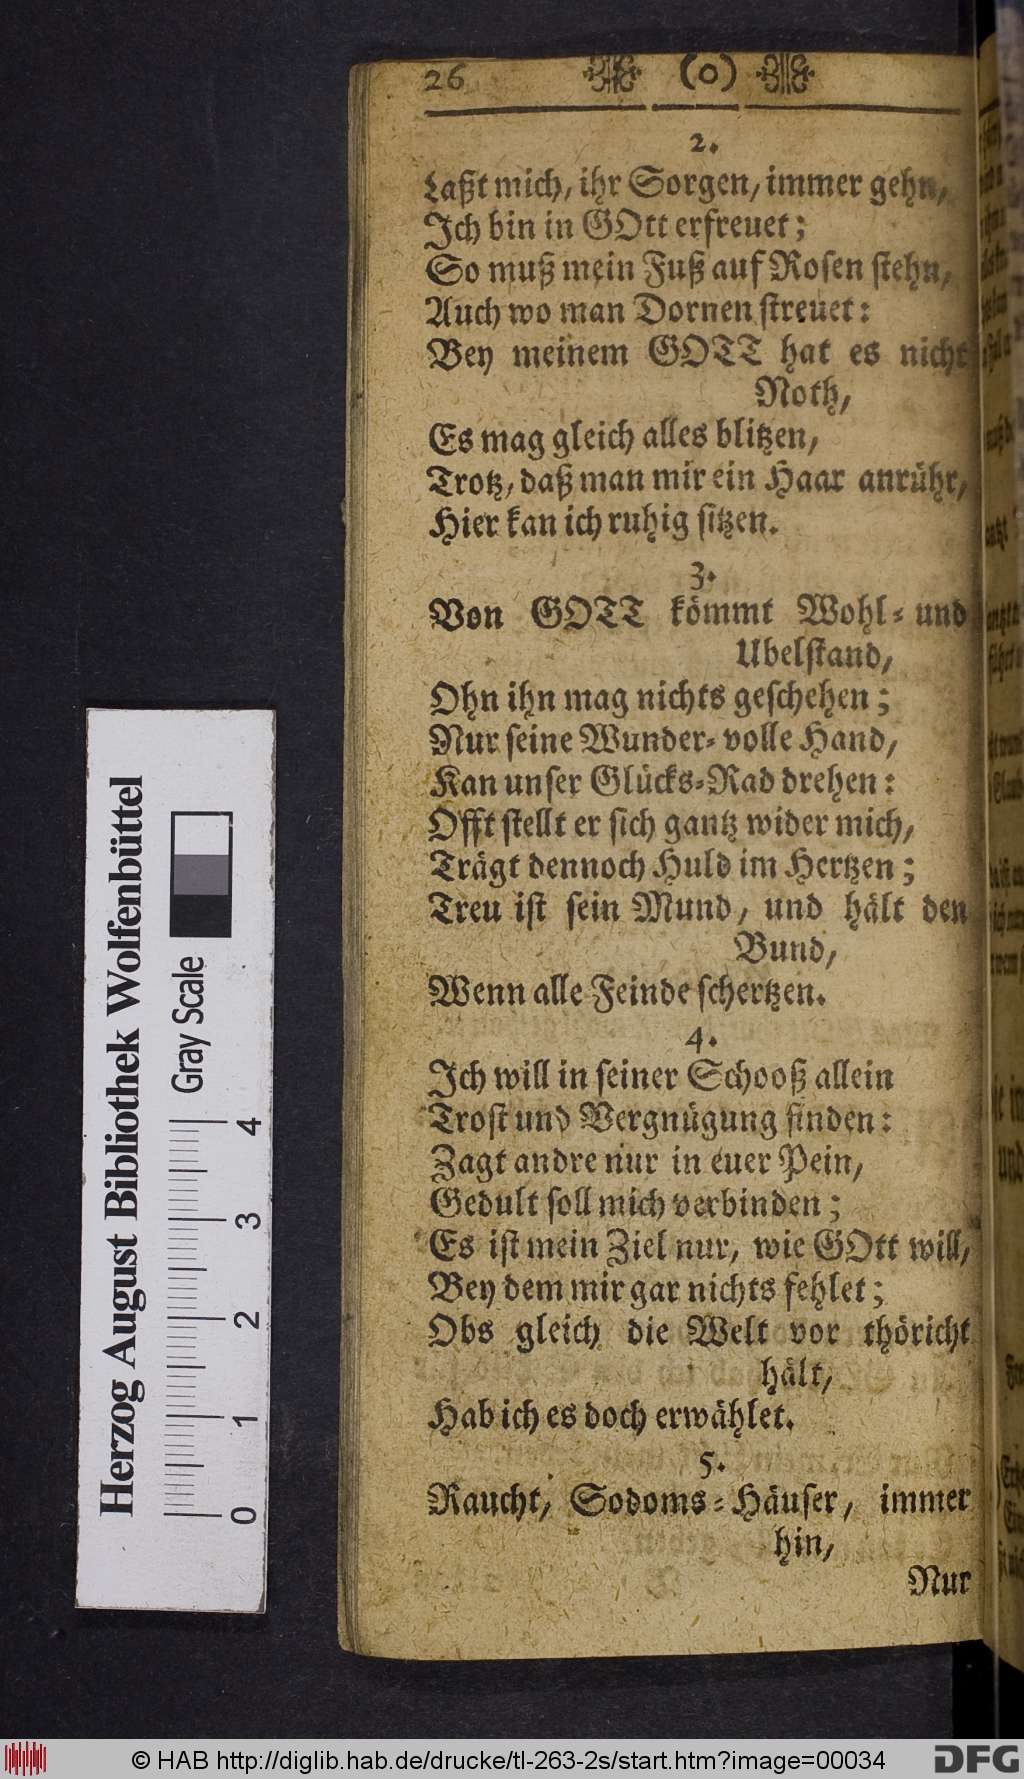 26 (o)
2.
Laßt mich, ihr Sorgen, immer gehn,
Ich bin in GOtt erfreuet;
So muß mein Fuß auf Rosen stehn,
Auch wo man Dornen streuet:
Bey meinem GOTT hat es nicht
Noth,
Es mag gleich alles blitzen,
Trotz, daß man mir ein Haar anrühr,
Hier kan ich ruhig sitzen.
3.
Von GOTT kömmt Wohl- und
Ubelstand,
Ohn ihn mag nichts geschehen;
Nur seine Wunder-volle Hand,
Kan unser Glücks-Rad drehen:
Offt stellt er sich gantz wider mich,
Trägt dennoch Huld im Hertzen;
Treu ist sein Mund, und hält den
Bund,
Wenn alle Feinde schertzen.
4.
Ich will in seiner Schooß allein
Trost und Vergnügung finden:
Zagt andre nur in euer Pein,
Gedult soll mich verbinden;
Es ist mein Ziel nur, wie GOtt will,
Bey dem mir gar nichts fehlet;
Obs gleich die Welt vor thöricht
hält,
Hab ich es doch erwählet.
5.
Raucht, Sodoms-Häuser, immer
hin,
Nur
Herzog August Bibliothek Wolfenbüttel
Gray Scale
0 1 2 3 4
© HAB http://diglib.hab.de/drucke/tl-263-2s/start.htm?image=00034
DFG